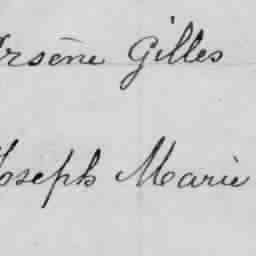 Arsène Gilles
Joseph Marie